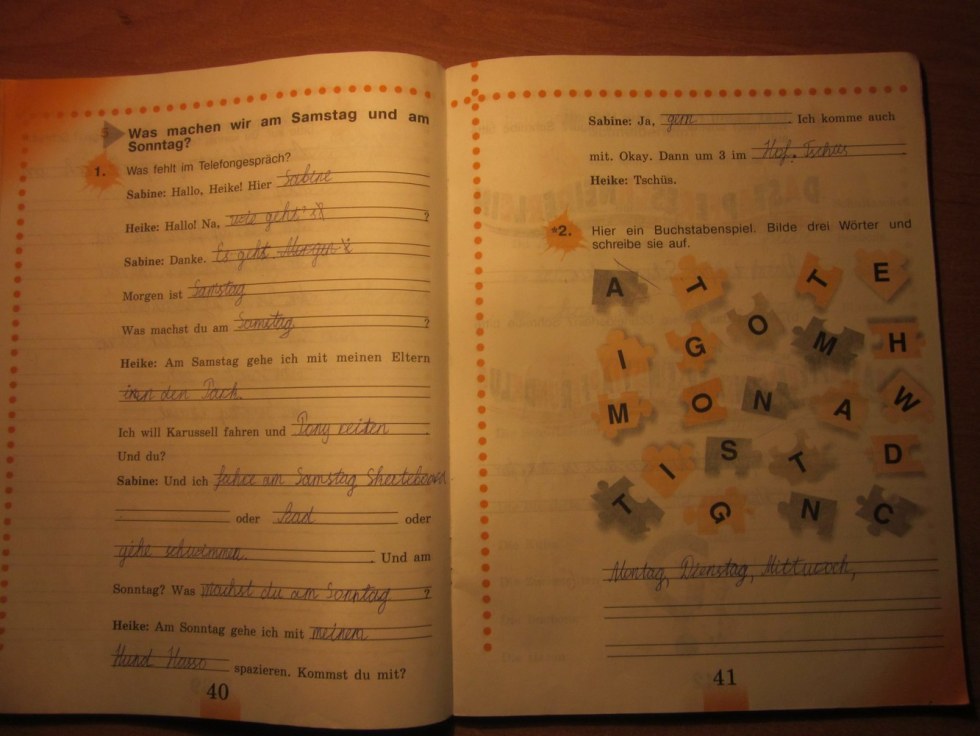 5 Was machen wir am Samstag und am
Sonntag?
1. Was fehlt im Telefongespräch?
Sabine: Hallo, Heike! Hier Sabine
Heike: Hallo! Na, wie geht's ?
Sabine: Danke. Es geht. Morgen
Morgen ist Samstag
Was machst du am Samstag ?
Heike: Am Samstag gehe ich mit meinen Eltern
in den Park
Ich will Karussell fahren und Pony reiten
Und du?
Sabine: Und ich fahre am Samstag
oder Rad oder
gehe schwimmen. Und am
Sonntag? Was machst du am Sonntag ?
Heike: Am Sonntag gehe ich mit meinem
Hund Hasso spazieren. Kommst du mit?
40
Sabine: Ja, gern. Ich komme auch
mit. Okay. Dann um 3 im Hof. Tschüs
Heike: Tschüs.
*2. Hier ein Buchstabenspiel. Bilde drei Wörter und
schreibe sie auf.
A T T E
I G O M H
M O N A W
I S T D
T G N C
Montag, Dienstag, Mittwoch,
41